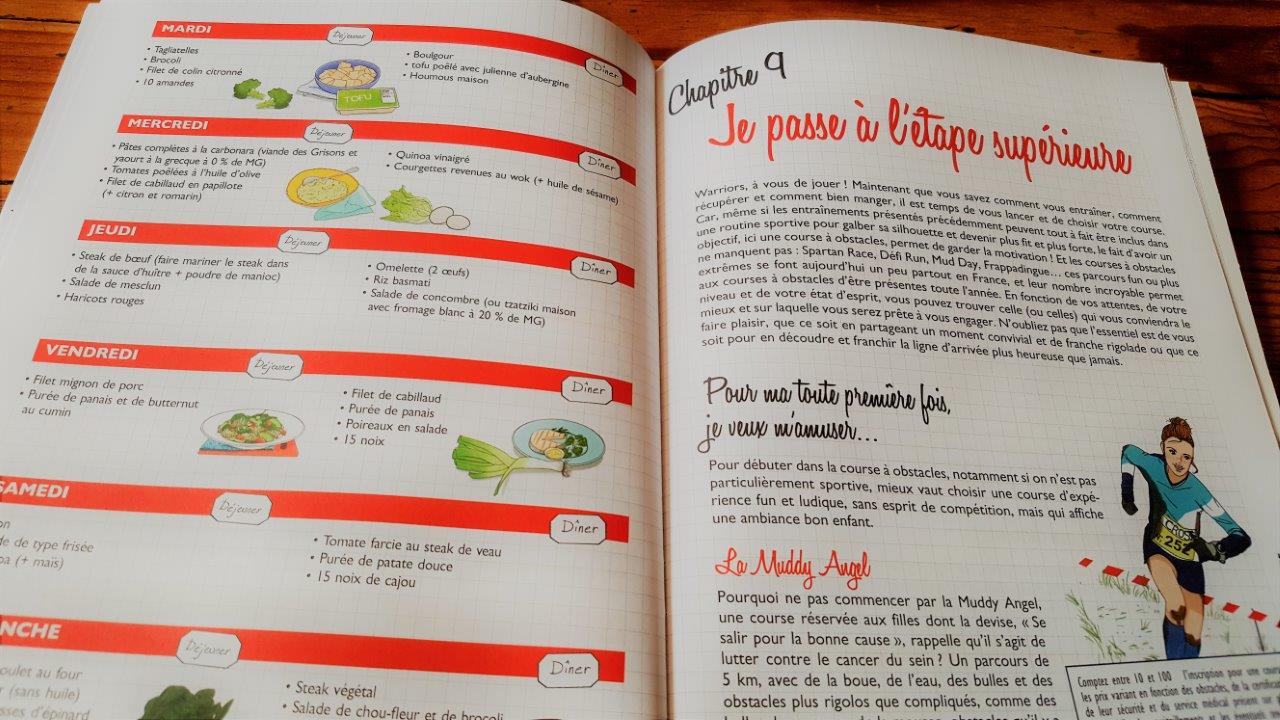 MARDI
Déjeuner
• Tagliatelles
• Brocoli
• Filet de colin citronné
• 10 amandes
TOFU
Dîner
• Boulgour
• tofu poêlé avec julienne d'aubergine
• Houmous maison
MERCREDI
Déjeuner
• Pâtes complètes à la carbonara (viande des Grisons et
yaourt à la grecque à 0 % de MG)
• Tomates poêlées à l'huile d'olive
• Filet de cabillaud en papillote
(+ citron et romarin)
Dîner
• Quinoa vinaigré
• Courgettes revenues au wok (+ huile de sésame)
JEUDI
Déjeuner
• Steak de bœuf (faire mariner le steak dans
de la sauce d'huître + poudre de manioc)
• Salade de mesclun
• Haricots rouges
Dîner
• Omelette (2 œufs)
• Riz basmati
• Salade de concombre (ou tzatziki maison
avec fromage blanc à 20 % de MG)
VENDREDI
Déjeuner
• Filet mignon de porc
• Purée de panais et de butternut
au cumin
Dîner
• Filet de cabillaud
• Purée de panais
• Poireaux en salade
• 15 noix
SAMEDI
Déjeuner
de type frisée
(+ maïs)
Dîner
• Tomate farcie au steak de veau
• Purée de patate douce
• 15 noix de cajou
NCHE
Déjeuner
oulet au four
(sans huile)
sses d'épinard
Dîner
• Steak végétal
• Salade de chou-fleur et de brocoli
Chapitre 9
Je passe à l'étape supérieure
Warriors, à vous de jouer ! Maintenant que vous savez comment vous entraîner, comment
récupérer et comment bien manger, il est temps de vous lancer et de choisir votre course.
Car, même si les entraînements présentés précédemment peuvent tout à fait être inclus dans
une routine sportive pour galber sa silhouette et devenir plus fit et plus forte, le fait d'avoir un
objectif, ici une course à obstacles, permet de garder la motivation ! Et les courses à obstacles
ne manquent pas : Spartan Race, Défi Run, Mud Day, Frappadingue… ces parcours fun ou plus
extrêmes se font aujourd'hui un peu partout en France, et leur nombre incroyable permet
aux courses à obstacles d'être présentes toute l'année. En fonction de vos attentes, de votre
niveau et de votre état d'esprit, vous pouvez trouver celle (ou celles) qui vous conviendra le
mieux et sur laquelle vous serez prête à vous engager. N'oubliez pas que l'essentiel est de vous
faire plaisir, que ce soit en partageant un moment convivial et de franche rigolade ou que ce
soit pour en découdre et franchir la ligne d'arrivée plus heureuse que jamais.
Pour ma toute première fois,
je veux m'amuser…
Pour débuter dans la course à obstacles, notamment si on n'est pas
particulièrement sportive, mieux vaut choisir une course d'expé-
rience fun et ludique, sans esprit de compétition, mais qui affiche
une ambiance bon enfant.
CROSS
252
La Muddy Angel
Pourquoi ne pas commencer par la Muddy Angel,
une course réservée aux filles dont la devise, « Se
salir pour la bonne cause », rappelle qu'il s'agit de
lutter contre le cancer du sein ? Un parcours de
5 km, avec de la boue, de l'eau, des bulles et des
obstacles plus rigolos que compliqués, comme des
Comptez entre 10 et 100 l'inscription pour une
les prix variant en fonction des obstacles, de la
de leur sécurité et du service médical présent sur